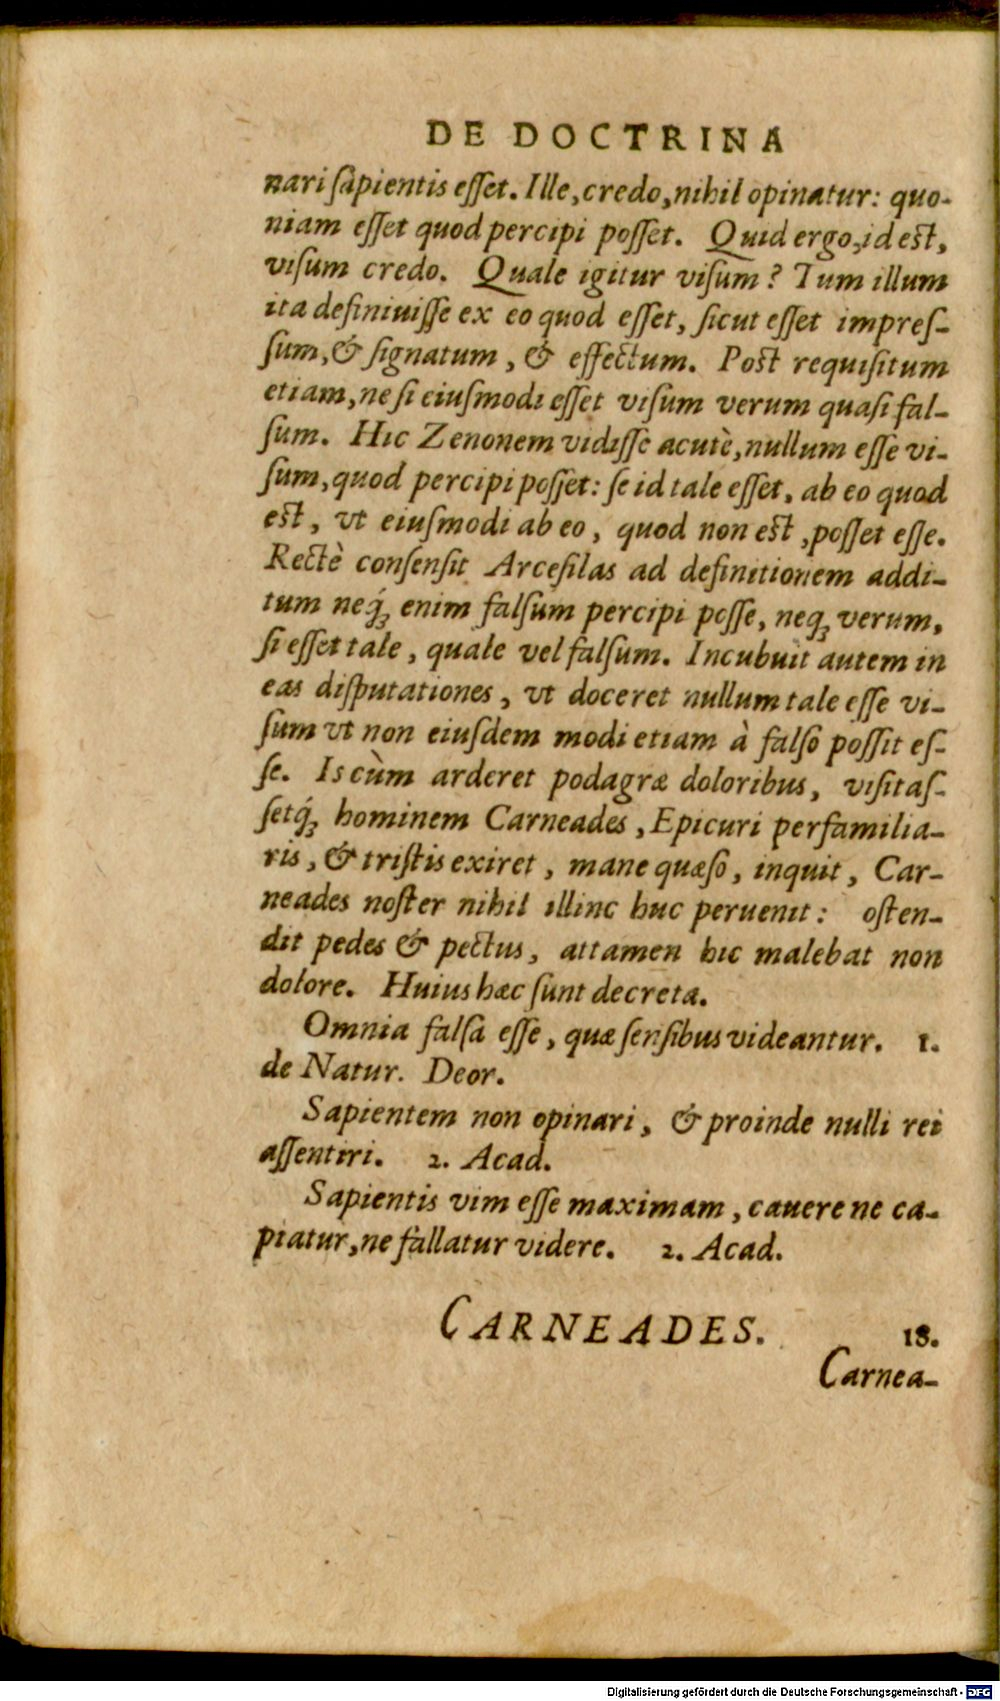 DE DOCTRINA
nari ſapientis eſſet. Ille, credo, nihil opinatur: quo-
niam eſſet quod percipi poſſet. Quid ergo, id eſt,
viſum credo. Quale igitur viſum? Tum illum
ita definiuiſſe ex eo quod eſſet, ſicut eſſet impreſ-
ſum, & ſignatum, & effectum. Poſt requiſitum
etiam, ne ſi eiuſmodi eſſet viſum verum quaſi fal-
ſum. Hic Zenonem vidiſſe acutè, nullum eſſe vi-
ſum, quod percipi poſſet: ſe id tale eſſet, ab eo quod
eſt, vt eiuſmodi ab eo, quod non eſt, poſſet eſſe.
Rectè conſenſit Arceſilas ad definitionem addi-
tum neq́; enim falſum percipi poſſe, neq; verum,
ſi eſſet tale, quale vel falſum. Incubuit autem in
eas diſputationes, vt doceret nullum tale eſſe vi-
ſum vt non eiuſdem modi etiam à falſo poſſit eſ-
ſe. Is cùm arderet podagræ doloribus, viſitaſ-
ſetq́; hominem Carneades, Epicuri perfamilia-
ris, & triſtis exiret, mane quæſo, inquit, Car-
neades noſter nihil illinc huc peruenit: oſten-
dit pedes & pectus, attamen hic malebat non
dolore. Huius hæc ſunt decreta.
Omnia falſa eſſe, quæ ſenſibus videantur. 1.
de Natur. Deor.
Sapientem non opinari, & proinde nulli rei
aſſentiri. 2. Acad.
Sapientis vim eſſe maximam, cauere ne ca-
piatur, ne fallatur videre. 2. Acad.
CARNEADES. 18.
Carnea-
Digitalisierung gefördert durch die Deutsche Forschungsgemeinschaft - DFG